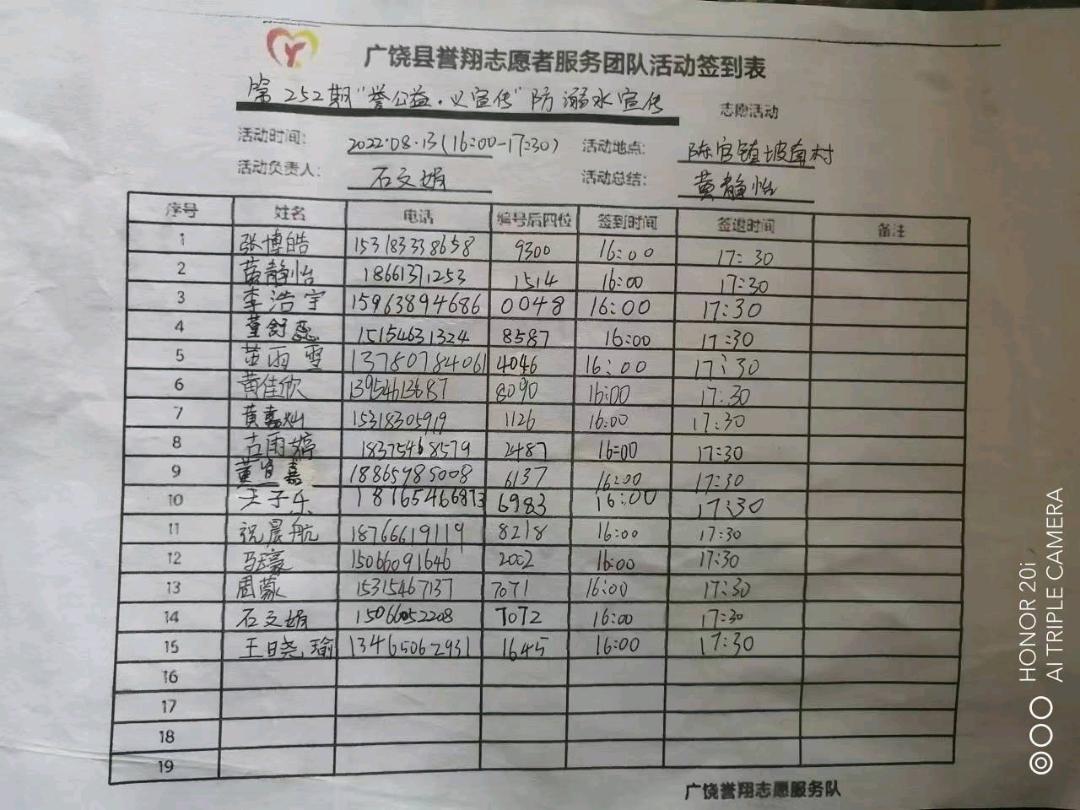 广饶县誉翔志愿者服务团队活动签到表
第252期"誉公益·义宣传"防溺水宣传 志愿活动
活动时间: 2022.08.13(16:00-17:30) 活动地点: 陈官镇坡南村
活动负责人: 石文娟 活动总结: 黄静怡
序号 姓名 电话 编号后四位 签到时间 签退时间 备注
1 张博皓 153183338658 9300 16:00 17:30
2 黄静怡 18661371253 1514 16:00 17:30
3 李浩宇 15963894686 0048 16:00 17:30
4 董舒蕊 15154631324 8587 16:00 17:30
5 苗雨雪 13780784061 4046 16:00 17:30
6 黄佳欣 13954613687 8090 16:00 17:30
7 黄嘉灿 15318305919 1126 16:00 17:30
8 古雨婷 18375468579 2487 16:00 17:30
9 黄 嘉 18865985008 6137 16:00 17:30
10 王子乐 18165466873 6983 16:00 17:30
11 祝晨航 18766619119 8218 16:00 17:30
12 15066091646 2002 16:00 17:30
13 周蒙 15315467137 7071 16:00 17:30
14 石文娟 15066052208 7072 16:00 17:30
15 王晓瑜 13465062931 1645 16:00 17:30
16
17
18
19
广饶誉翔志愿服务队
HONOR 20i
AI TRIPLE CAMERA